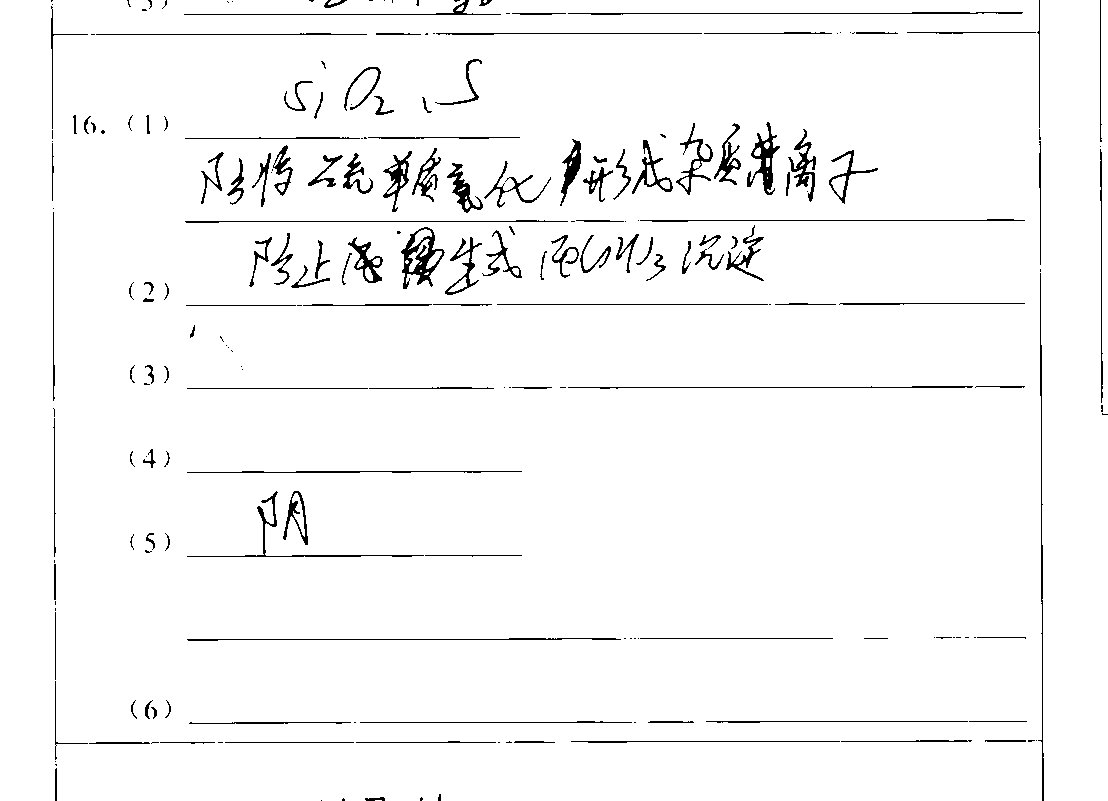 (3)
16. (1) SiO₂、S
防将硫单质氧化形成杂质离子
(2) 防止生成Fe(OH)₃沉淀
(3)
(4)
(5) 阴
(6)